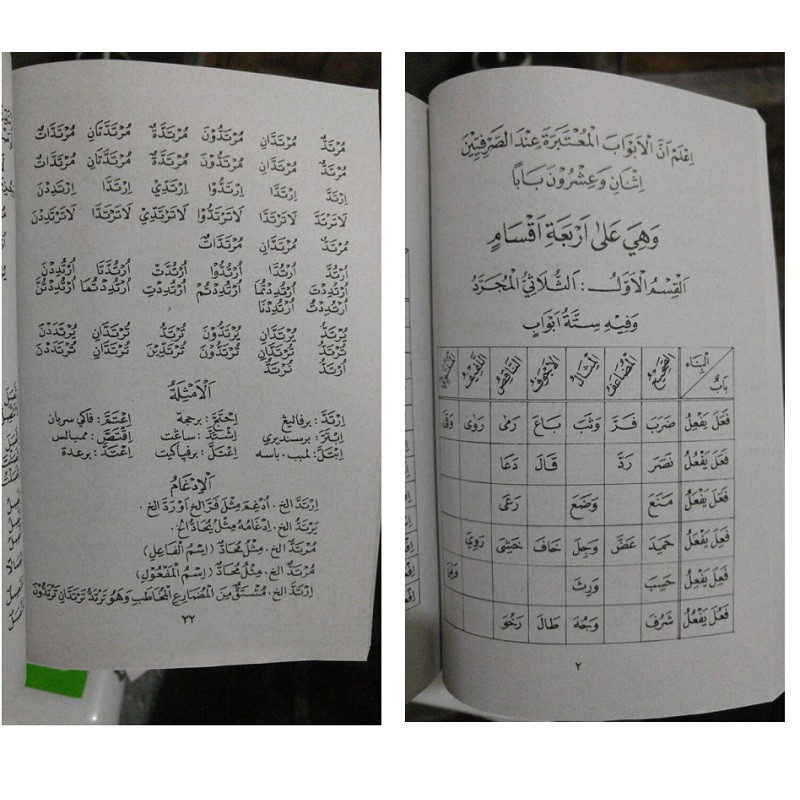 مُرْتَدٌّ مُرْتَدَّانِ مُرْتَدُّوْنَ مُرْتَدَّةٌ مُرْتَدَّتَانِ مُرْتَدَّاتٌ
مُرْتَدٌّ مُرْتَدَّانِ مُرْتَدُّوْنَ مُرْتَدَّةٌ مُرْتَدَّتَانِ مُرْتَدَّاتٌ
اِرْتَدَّ اِرْتَدَّا اِرْتَدُّوْا اِرْتَدِّيْ اِرْتَدَّا اِرْتَدِدْنَ
لَاتَرْتَدَّ لَاتَرْتَدَّا لَاتَرْتَدُّوْا لَاتَرْتَدِّيْ لَاتَرْتَدَّا لَاتَرْتَدِدْنَ
مُرْتَدٌّ مُرْتَدَّانِ مُرْتَدَّاتٌ
اُرْتُدَّ اُرْتُدَّا اُرْتُدُّوْا اُرْتُدَّتْ اُرْتُدَّتَا اُرْتُدِدْنَ
اُرْتُدِدْتَ اُرْتُدِدْتُمَا اُرْتُدِدْتُمْ اُرْتُدِدْتِ اُرْتُدِدْتُمَا اُرْتُدِدْتُنَّ
اُرْتُدِدْتُ اُرْتُدِدْنَا
يُرْتَدُّ يُرْتَدَّانِ يُرْتَدُّوْنَ تُرْتَدُّ تُرْتَدَّانِ يُرْتَدَدْنَ
تُرْتَدُّ تُرْتَدَّانِ تُرْتَدُّوْنَ تُرْتَدِّيْنَ تُرْتَدَّانِ تُرْتَدَدْنَ
اُرْتَدُّ نُرْتَدُّ
اَلْاَمْثِلَةُ
اِرْتَدَّ : برفاليڠ اِحْتَجَّ : برحجة اِعْتَمَّ : فاكي سربان
اِبْتَزَّ : برسنديري اِشْتَدَّ : ساڠت اِقْتَصَّ : ممبالس
اِبْتَلَّ : لمبب، باسه اِعْتَلَّ : برفياكيت اِعْتَدَّ : برعدة
اَلْاِدْغَامُ
اِرْتَدَّ الخ . اُدْغِمَ مِثْلَ فَرَّ الخ اَوْ رَدَّ الخ .
يَرْتَدُّ الخ . اِدْغَامُهُ مِثْلُ يُحَادُّ الخ .
مُرْتَدٌّ الخ . مِثْلُ مُحَادٌّ (اِسْمُ الْفَاعِلِ)
مُرْتَدٌّ الخ . مِثْلُ مُحَادٌّ (اِسْمُ الْمَفْعُوْلِ)
اِرْتَدَّ الخ . مُشْتَقٌّ مِنَ الْمُضَارِعِ الْمُخَاطَبِ وَهُوَ تَرْتَدُّ تَرْتَدَّانِ تَرْتَدُّوْنَ
٢٢
اِعْلَمْ اَنَّ الْاَبْوَابَ الْمُعْتَبَرَةَ عِنْدَ الصَّرْفِيِّيْنَ
اِثْنَانِ وَعِشْرُوْنَ بَابًا
وَهِيَ عَلٰى اَرْبَعَةِ اَقْسَامٍ
اَلْقِسْمُ الْاَوَّلُ : اَلثُّلَاثِيُّ الْمُجَرَّدُ
وَفِيْهِ سِتَّةُ اَبْوَابٍ
اَلْبِنَاءُ بَابُ الصَّحِيْحُ الْمُضَاعَفُ الْمِثَالُ الْاَجْوَفُ النَّاقِصُ اللَّفِيْفُ
فَعَلَ يَفْعِلُ ضَرَبَ فَرَّ وَثَبَ بَاعَ رَمٰى رَوٰى وَقٰى
فَعَلَ يَفْعُلُ نَصَرَ رَدَّ قَالَ دَعَا
فَعَلَ يَفْعَلُ مَنَعَ وَضَعَ رَعٰى
فَعِلَ يَفْعَلُ حَمِدَ عَضَّ وَجِلَ خَافَ خَشِيَ رَوِيَ
فَعِلَ يَفْعِلُ حَسِبَ وَرِثَ وَلِيَ
فَعُلَ يَفْعُلُ شَرُفَ وَجُهَ طَالَ رَخُوَ
٢